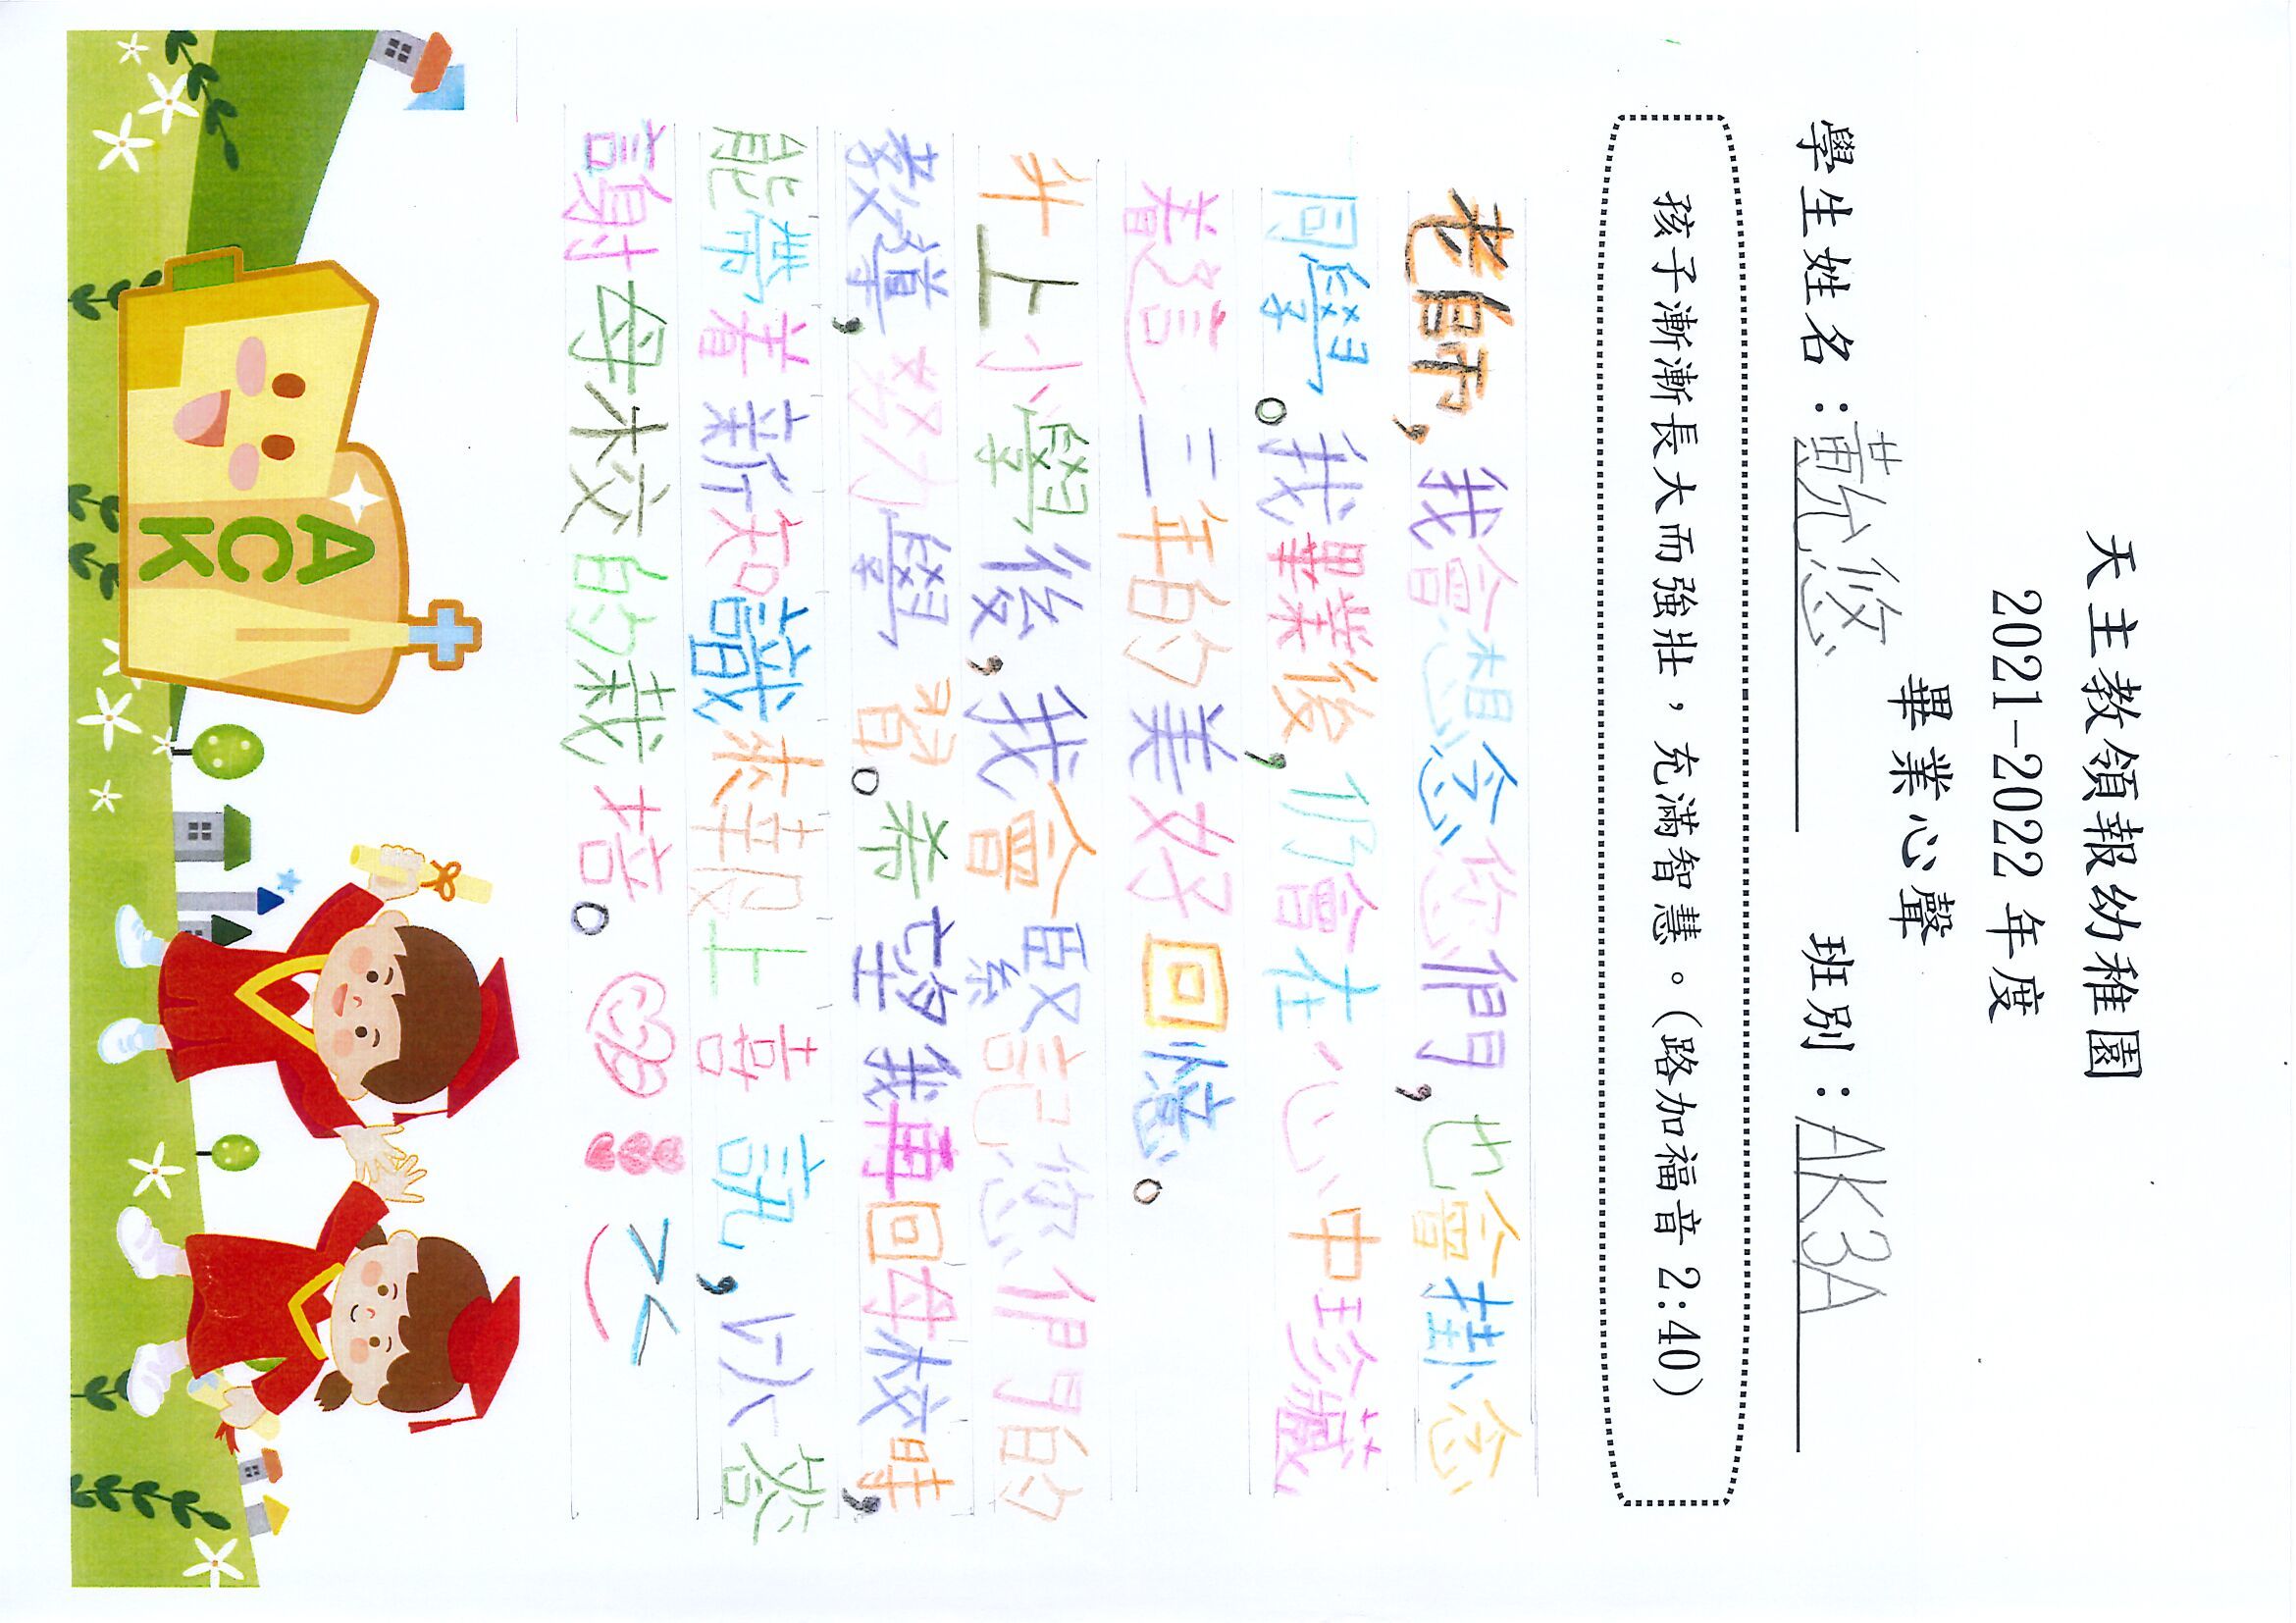 天主教領報幼稚園
2021-2022 年度
畢業心聲
學生姓名：黃允悠 班別：AK3A
孩子漸漸長大而強壯，充滿智慧。(路加福音 2:40)
老師，我會想念您們，也會掛念
同學。我畢業後，仍會在心中珍藏
着這三年的美好回憶。
升上小學後，我會緊記您們的
教導，努力學習。希望我再回母校時，
能帶着新知識來報上喜訊，以答
謝母校的栽培。
ACK